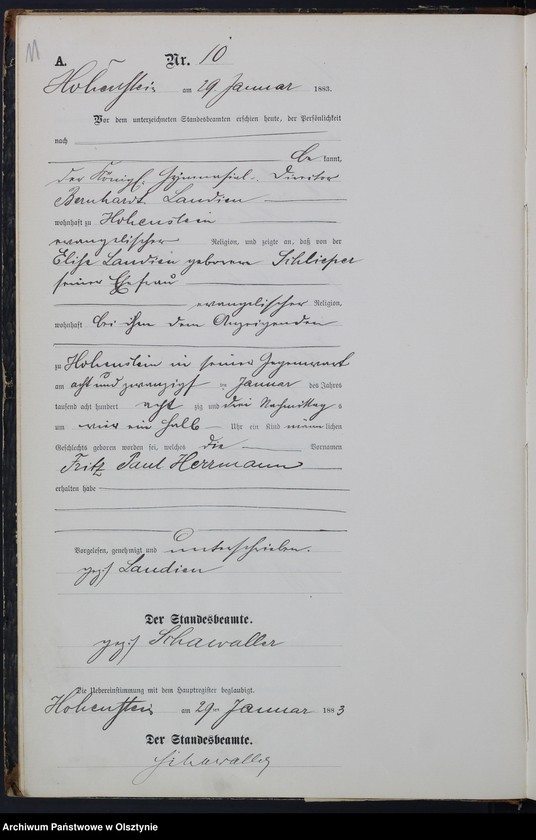 11
A. Nr. 10
Hohenstein am 29. Januar 1883.
Vor dem unterzeichneten Standesbeamten erschien heute, der Persönlichkeit
nach
be kannt,
der Königl. Gymnasial-Director
Bernhardt Landien
wohnhaft zu Hohenstein
evangelischer Religion, und zeigte an, daß von der
Elise Landien geborene Schlieper
seiner Ehefrau
evangelischer Religion,
wohnhaft bei ihm dem Anzeigenden
zu Hohenstein in seiner Gegenwart
am acht und zwanzigst en Januar des Jahres
tausend acht hundert acht zig und drei Nachmittag s
um vier ein halb Uhr ein Kind männlichen
Geschlechts geboren worden sei, welches die Vornamen
Fritz Paul Herrmann
erhalten habe
Vorgelesen, genehmigt und unterschrieben.
gez. Landien
Der Standesbeamte.
gez. Schawaller
Die Uebereinstimmung mit dem Hauptregister beglaubigt.
Hohenstein am 29ten Januar 1883
Der Standesbeamte.
Schawaller
Archiwum Państwowe w Olsztynie